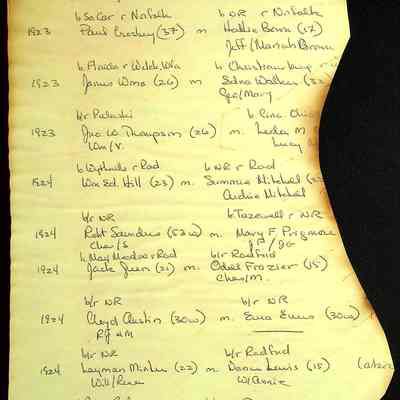 b So Car r Norfolk b NR r Norfolk
1923 Paul Crosby (37) m Hattie Bonn (17)
Jeff/Mariah Bonn
b Florida r Welch, WVa b Christiansburg r
1923 James Wms (26) m Edna Walker (32)
Geo/Mary
b/r Pulaski b Pine Ohio
1923 Jno W. Thompson (26) m. Lester M
Wm/V. Lucy
b Wytheville r Rad b NR r Rad
1924 Wm Ed. Hill (23) m. Summie Mitchel
Audie Mitchel
b/r NR b Tazewell r NR
1924 Robt Saunders (53w) m. Mary F Prigmore
Chas/S JP/JG
b May Meadow r Rad b/r Radford
1924 Jack June (21) m. Odell Frazier (15)
Chas/M.
b/r NR b/r NR
1924 Cloyd Austin (30w) m. Ema Ems (30w)
RJ & M
b/r NR b/r Radford
1924 Layman Minter (22) m. Dona Lewis (15)
Will/Rena W/Annie